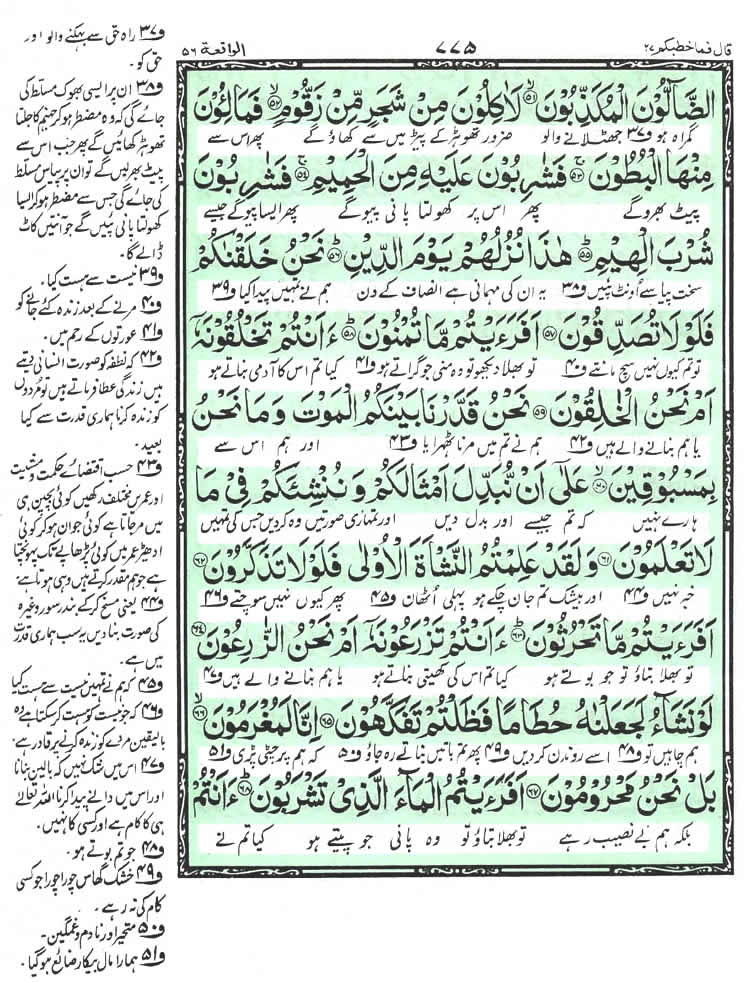 قال فما خطبكم ۲۷
۷۷۵
الواقعة ۵۶
الضَّآلُّوْنَ الْمُكَذِّبُوْنَ ۙ۵۱ لَاٰكِلُوْنَ مِنْ شَجَرٍ مِّنْ زَقُّوْمٍ ۙ۵۲ فَمَالِـُٔوْنَ
گمراہ ہو و۳۷ جھٹلانے والو ضرور تھوہڑ کے پیڑ میں سے کھاؤ گے پھر اس سے
مِنْهَا الْبُطُوْنَ ۚ۵۳ فَشٰرِبُوْنَ عَلَيْهِ مِنَ الْحَمِيْمِ ۚ۵۴ فَشٰرِبُوْنَ
پیٹ بھرو گے پھر اس پر کھولتا پانی پیو گے پھر ایسا پیو گے جیسے
شُرْبَ الْهِيْمِ ؕ۵۵ هٰذَا نُزُلُهُمْ يَوْمَ الدِّيْنِ ؕ۵۶ نَحْنُ خَلَقْنٰكُمْ
سخت پیاسے اونٹ پئیں و۳۸ یہ ان کی مہمانی ہے انصاف کے دن ہم نے تمہیں پیدا کیا و۳۹
فَلَوْلَا تُصَدِّقُوْنَ ۵۷ اَفَرَءَيْتُمْ مَّا تُمْنُوْنَ ؕ۵۸ ءَاَنْتُمْ تَخْلُقُوْنَهٗۤ
تو تم کیوں نہیں سچ مانتے و۴۰ تو بھلا دیکھو تو وہ منی جو گراتے ہو و۴۱ کیا تم اس کا آدمی بناتے ہو
اَمْ نَحْنُ الْخٰلِقُوْنَ ۵۹ نَحْنُ قَدَّرْنَا بَيْنَكُمُ الْمَوْتَ وَمَا نَحْنُ
یا ہم بنانے والے ہیں و۴۲ ہم نے تم میں مرنا ٹھہرایا و۴۳ اور ہم اس سے
بِمَسْبُوْقِيْنَ ۙ۶۰ عَلٰۤى اَنْ نُّبَدِّلَ اَمْثَالَكُمْ وَ نُنْشِئَكُمْ فِيْ مَا
ہارے نہیں کہ تم جیسے اور بدل دیں اور تمہاری صورتیں وہ کر دیں جس کی تمہیں
لَا تَعْلَمُوْنَ ۶۱ وَ لَقَدْ عَلِمْتُمُ النَّشْاَةَ الْاُوْلٰى فَلَوْلَا تَذَكَّرُوْنَ ۶۲
خبر نہیں و۴۴ اور بیشک تم جان چکے ہو پہلی اٹھان و۴۵ پھر کیوں نہیں سوچتے و۴۶
اَفَرَءَيْتُمْ مَّا تَحْرُثُوْنَ ؕ۶۳ ءَاَنْتُمْ تَزْرَعُوْنَهٗۤ اَمْ نَحْنُ الزّٰرِعُوْنَ ۶۴
تو بھلا بتاؤ تو جو بوتے ہو کیا تم اس کی کھیتی بناتے ہو یا ہم بنانے والے ہیں و۴۷
لَوْ نَشَآءُ لَجَعَلْنٰهُ حُطَامًا فَظَلْتُمْ تَفَكَّهُوْنَ ۶۵ اِنَّا لَمُغْرَمُوْنَ ۙ۶۶
ہم چاہیں تو و۴۸ اسے روندن کر دیں و۴۹ پھر تم باتیں بناتے رہ جاؤ و۵۰ کہ ہم پر چٹی پڑی و۵۱
بَلْ نَحْنُ مَحْرُوْمُوْنَ ۶۷ اَفَرَءَيْتُمُ الْمَآءَ الَّذِيْ تَشْرَبُوْنَ ؕ۶۸ ءَاَنْتُمْ
بلکہ ہم بے نصیب رہے تو بھلا بتاؤ تو وہ پانی جو پیتے ہو کیا تم نے
و۳۷ راہ حق سے بہکنے والو اور
حق کو۔
و۳۸ ان پر ایسی بھوک مسلط کی
جائے گی کہ وہ مضطر ہو کر جہنم کا جلتا
تھوہڑ کھائیں گے پھر جب اس سے
پیٹ بھر لیں گے تو ان پر پیاس مسلط
کی جائے گی جس سے مضطر ہو کر ایسا
کھولتا پانی پئیں گے جو آنتیں کاٹ
ڈالے گا۔
و۳۹ نیست سے ہست کیا۔
و۴۰ مرنے کے بعد زندہ کئے جانے کو
و۴۱ عورتوں کے رحم میں۔
و۴۲ کہ نطفہ کو صورت انسانی دیتے
ہیں زندگی عطا فرماتے ہیں تو مردوں
کو زندہ کرنا ہماری قدرت سے کیا
بعید۔
و۴۳ حسب اقتضائے حکمت و مشیت
اور عمریں مختلف رکھیں کوئی بچپن ہی
میں مر جاتا ہے کوئی جوان ہو کر کوئی
ادھیڑ عمر میں کوئی بڑھاپے تک پہونچتا
ہے جو ہم مقدر کرتے ہیں وہی ہوتا ہے
و۴۴ یعنی مسخ کر کے بندر سور وغیرہ
کی صورت بنا دیں یہ سب ہماری قدرت
میں ہے۔
و۴۵ کہ ہم نے تمہیں نیست سے ہست کیا
و۴۶ کہ جو نیست کو ہست کر سکتا ہے وہ
بالیقین مردے کو زندہ کرنے پر قادر ہے۔
و۴۷ اس میں شک نہیں کہ بالیں بنانا
اور اس میں دانے پیدا کرنا اللہ تعالیٰ
ہی کا کام ہے اور کسی کا نہیں۔
و۴۸ جو تم بوتے ہو۔
و۴۹ خشک گھاس چورا چورا جو کسی
کام کی نہ رہے۔
و۵۰ متحیر اور نادم و غمگین۔
و۵۱ ہمارا مال بیکار ضائع ہو گیا۔